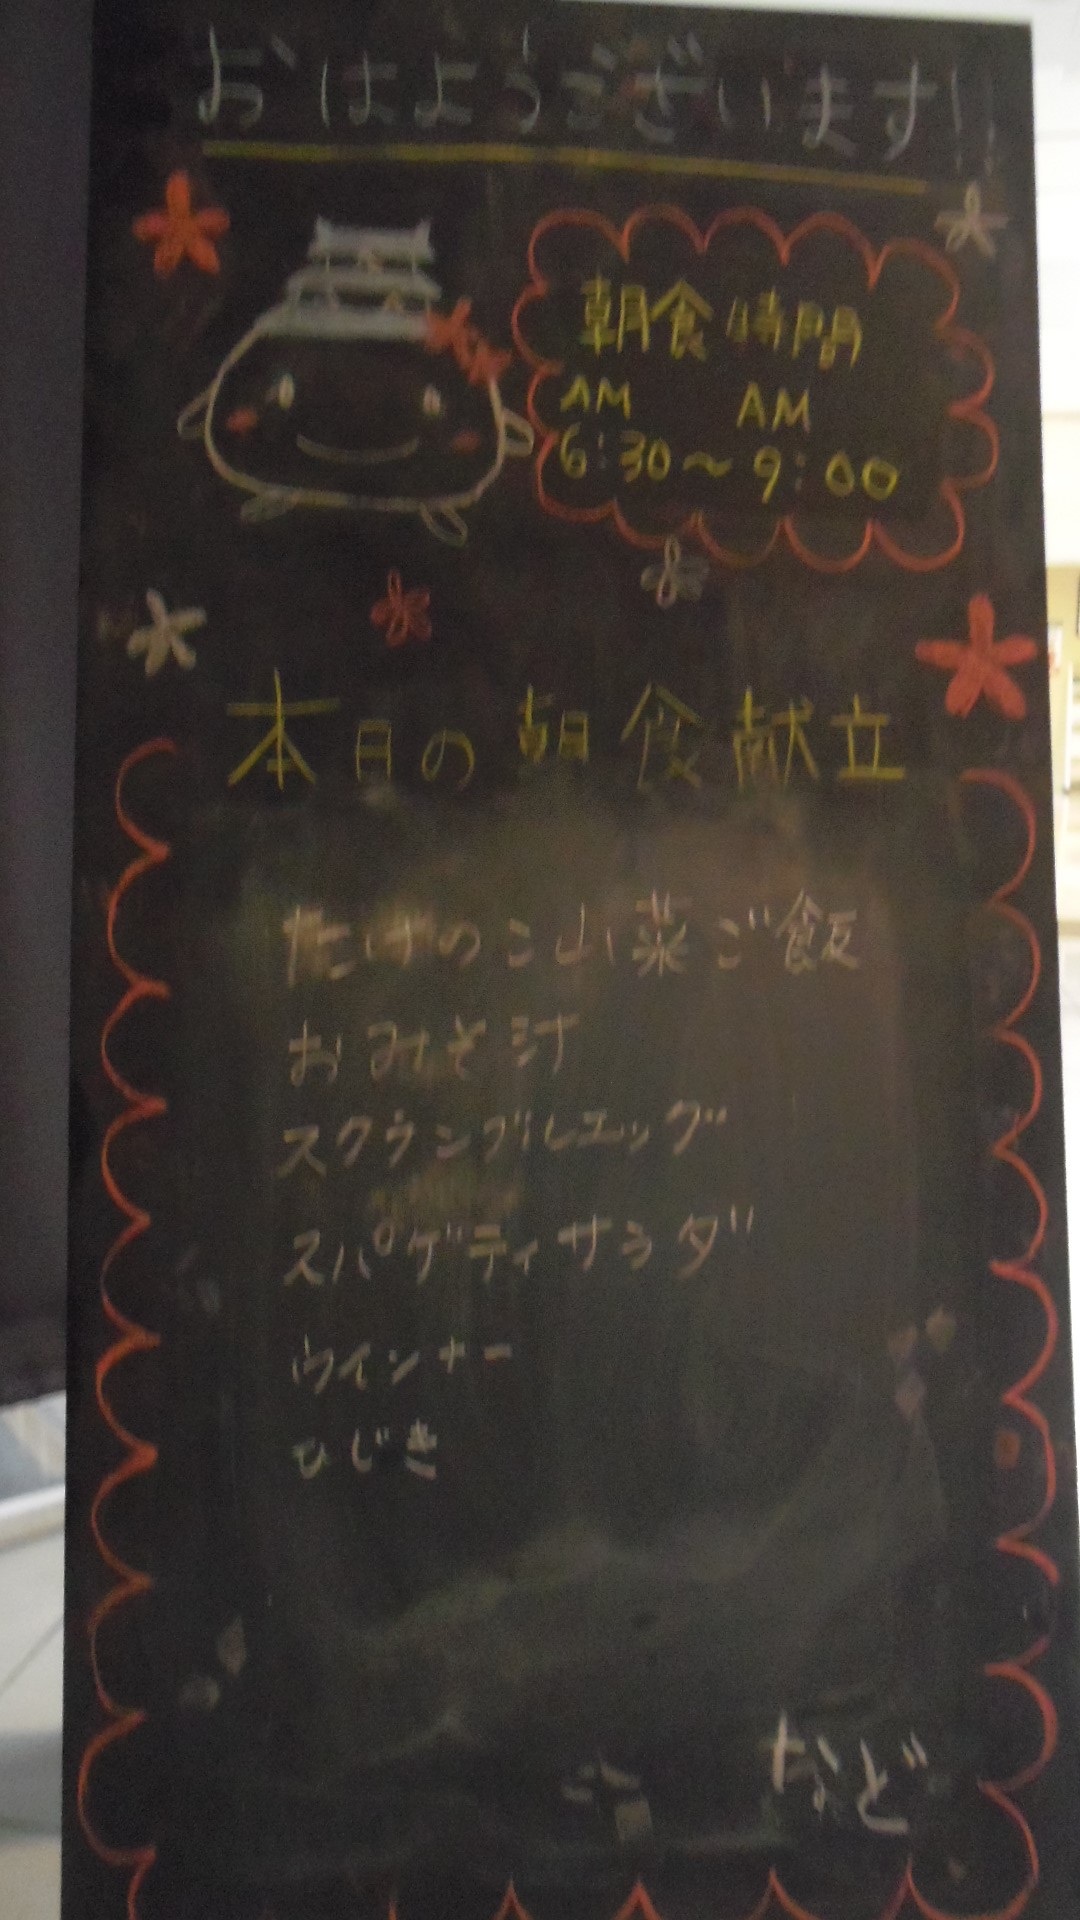 おはようございます!!
朝食時間
AM AM
6:30～9:00
本日の朝食献立
たけのこ山菜ご飯
おみそ汁
スクランブルエッグ
スパゲティサラダ
ウインナー
ひじき
など